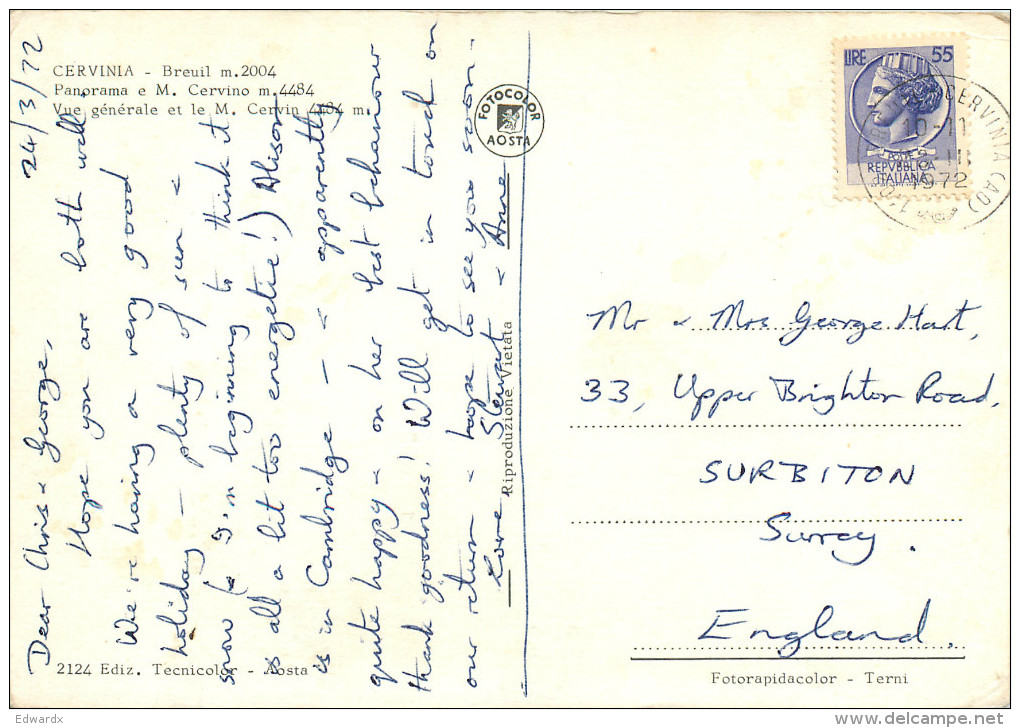 CERVINIA - Breuil m.2004
Panorama e M. Cervino m.4484
Vue générale et le M. Cervin 4484 m.
24/3/72
Dear Chris & George,
Hope you are both well
We're having a very good
holiday - plenty of sun &
snow (& I'm beginning to think it
is all a bit too energetic!) Alison
is in Cambridge - & apparently
quite happy & on her best behaviour
thank goodness! Will get in touch on
our return & hope to see you soon -
Love, Stewart & Anne
2124 Ediz. Tecnicolor - Aosta
FOTOCOLOR
AOSTA
Riproduzione Vietata
LIRE 55
POSTE
REPVBBLICA
ITALIANA
CERVINIA (AO)
10-11
III
1972
Mr & Mrs George Hart,
33, Upper Brighton Road,
SURBITON
Surrey.
England.
Fotorapidacolor - Terni
Edwardx
www.delcampe.net